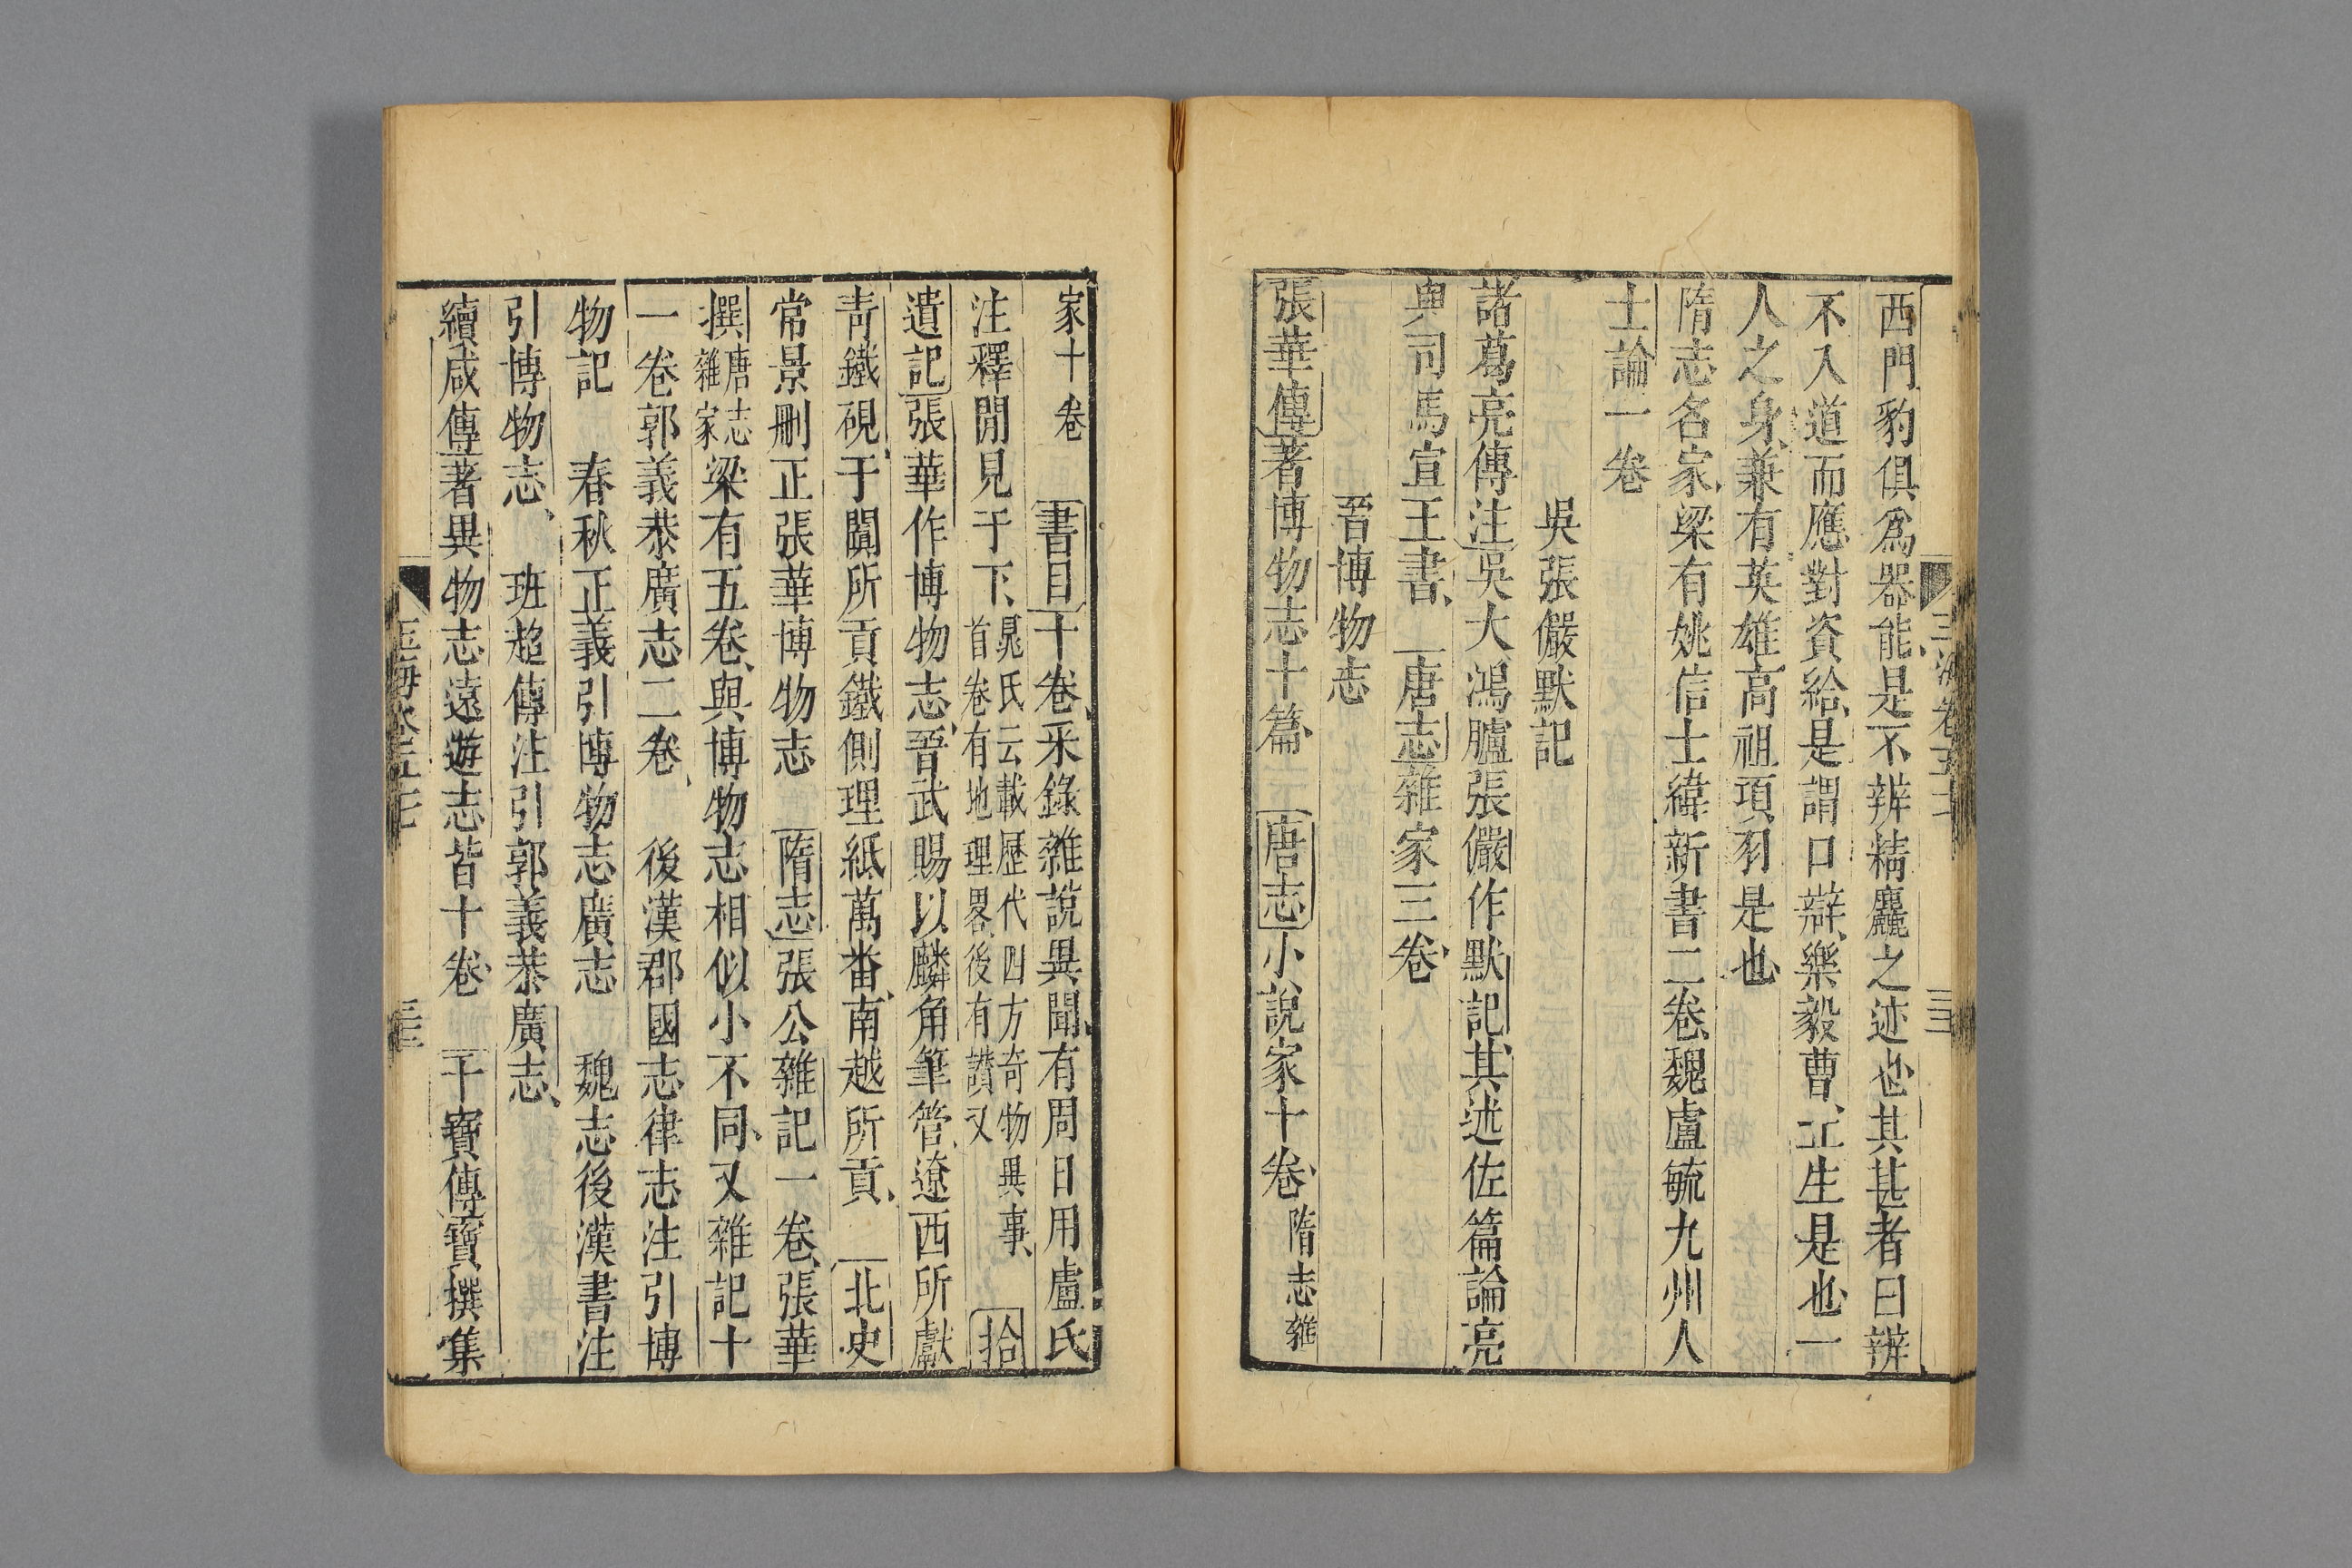 西門豹俱爲器能是不辨精麤之迹也其甚者曰辨
不入道而應對資給是謂口辯樂毅曹丘生是也一
人之身兼有英雄高祖項羽是也
隋志名家梁有姚信士緯新書二卷魏盧毓九州人
士論一卷
吳張儼默記
諸葛亮傳注吳大鴻臚張儼作默記其述佐篇論亮
與司馬宣王書唐志雜家三卷
晉博物志
張華傳著博物志十篇唐志小說家十卷隋志雜
家十卷書目十卷采錄雜說異聞有周日用盧氏
注釋閒見于下晁氏云載歷代四方奇物異事首卷有地理畧後有讚又拾
遺記張華作博物志晉武賜以麟角筆管遼西所獻
青鐵硯于闐所貢鐵側理紙萬番南越所貢北史
常景刪正張華博物志隋志張公雜記一卷張華
撰唐志雜家梁有五卷與博物志相似小不同又雜記十
一卷郭義恭廣志二卷後漢郡國志律志注引博
物記春秋正義引博物志廣志魏志後漢書注
引博物志班超傳注引郭義恭廣志
續咸傳著異物志遠遊志皆十卷干寶傳寶撰集